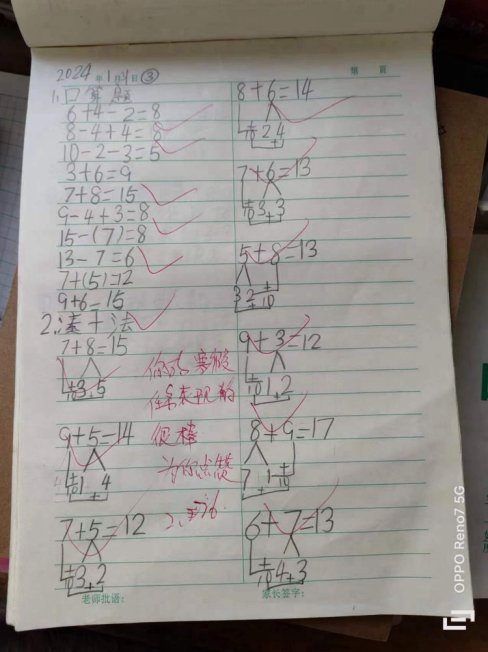 2024年1月31日 ③
1.口算题
6+4-2=8
8-4+4=8
10-2-3=5
3+6=9
7+8=15
9-4+3=8
15-(7)=8
13-7=6
7+(5)=12
9+6=15
2.凑十法
7+8=15
十
10 3 5
9+5=14
十
10 1 4
+
7+5=12
十
10 3 2
+
老师批语:
8+6=14
十
10 2 4
+
7+6=13
十
10 3 3
+
5+8=13
3 2 10
+
9+3=12
十
10 1 2
+
8+9=17
7 1 10
+
6+7=13
十
10 4 3
+
家长签字:
你在寒假
很棒
为你点赞
OPPO Reno7 5G